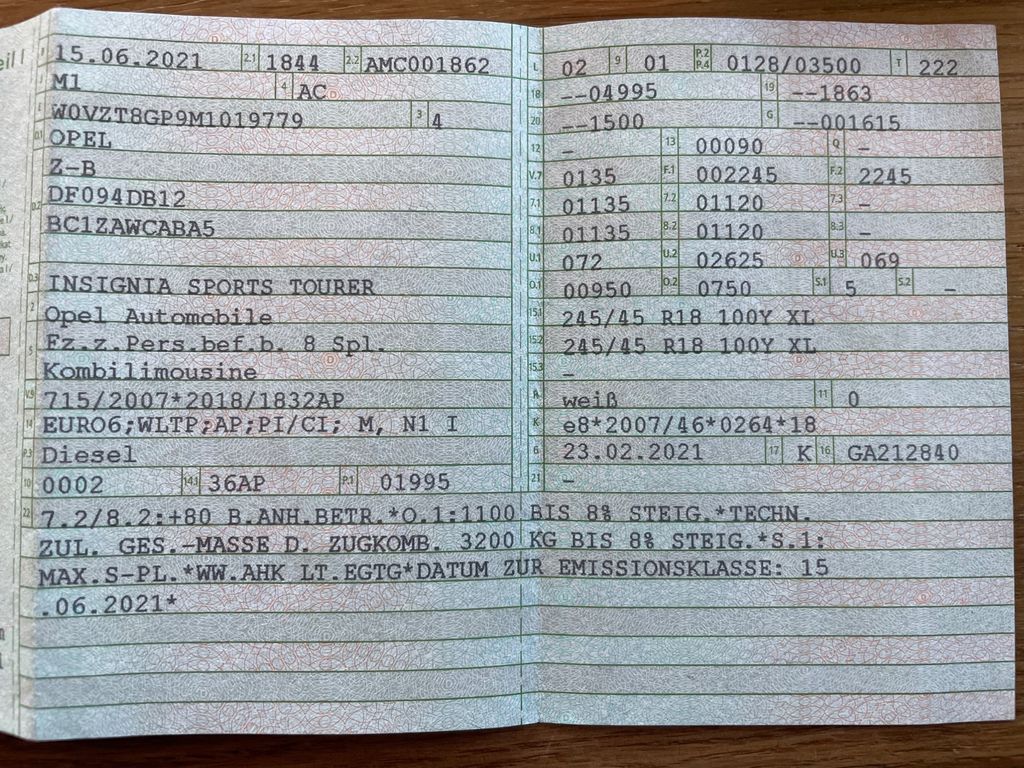 15.06.2021 2.1 1844 2.2 AMC001862
M1 4 AC
W0VZT8GP9M1019779 3 4
OPEL
Z-B
DF094DB12
BC1ZAWCABA5
D.3 INSIGNIA SPORTS TOURER
2 Opel Automobile
5 Fz.z.Pers.bef.b. 8 Spl.
Kombilimousine
V.9 715/2007*2018/1832AP
14 EURO6;WLTP;AP;PI/CI; M, N1 I
P.3 Diesel
10 0002 14.1 36AP P.1 01995
L 02 9 01 P.2 P.4 0128/03500 T 222
18 --04995 19 --1863
20 --1500 G --001615
12 - 13 00090 Q -
V.7 0135 F.1 002245 F.2 2245
7.1 01135 7.2 01120 7.3 -
8.1 01135 8.2 01120 8.3 -
U.1 072 U.2 02625 U.3 069
O.1 00950 O.2 0750 S.1 5 S.2 -
15.1 245/45 R18 100Y XL
15.2 245/45 R18 100Y XL
15.3 -
R weiß 11 0
K e8*2007/46*0264*18
6 23.02.2021 17 K 16 GA212840
21 -
22 7.2/8.2:+80 B.ANH.BETR.*O.1:1100 BIS 8% STEIG.*TECHN.
ZUL. GES.-MASSE D. ZUGKOMB. 3200 KG BIS 8% STEIG.*S.1:
MAX.S-PL.*WW.AHK LT.EGTG*DATUM ZUR EMISSIONSKLASSE: 15
.06.2021*